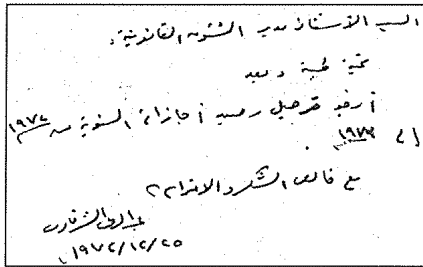 السيد الأستاذ مدير الشئون القانونية.
تحية طيبة وبعد
أرجو ترحيل رصيد أجازاتي السنوية من ١٩٧٢
إلى ١٩٧٣.
مع خالص الشكر والاحترام
الشرقاوي
١٩٧٢/١٢/٢٥